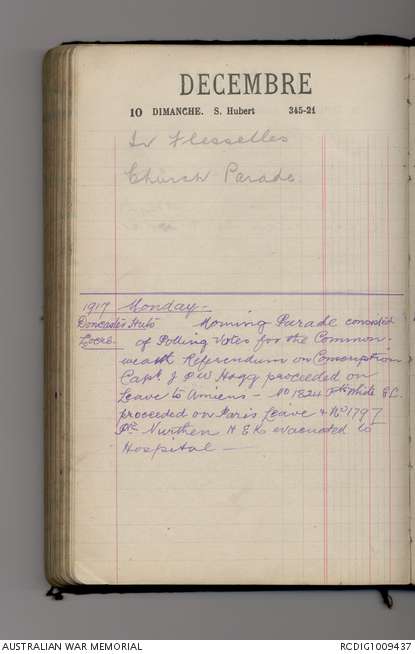 DECEMBRE
10 DIMANCHE. S. Hubert 345-21
In Flesselles
Church Parade.
1917 Monday -
Doncaster Huts Morning Parade consisted
Locre. of Polling Votes for the Common-
wealth Referendum on Conscription
Capt J D W Hogg proceeded on
Leave to Amiens - No 1824 Pte White E.C.
proceeded on Paris Leave & No 1797
Pte Nurthen H E K evacuated to
Hospital -
AUSTRALIAN WAR MEMORIAL
RCDIG1009437